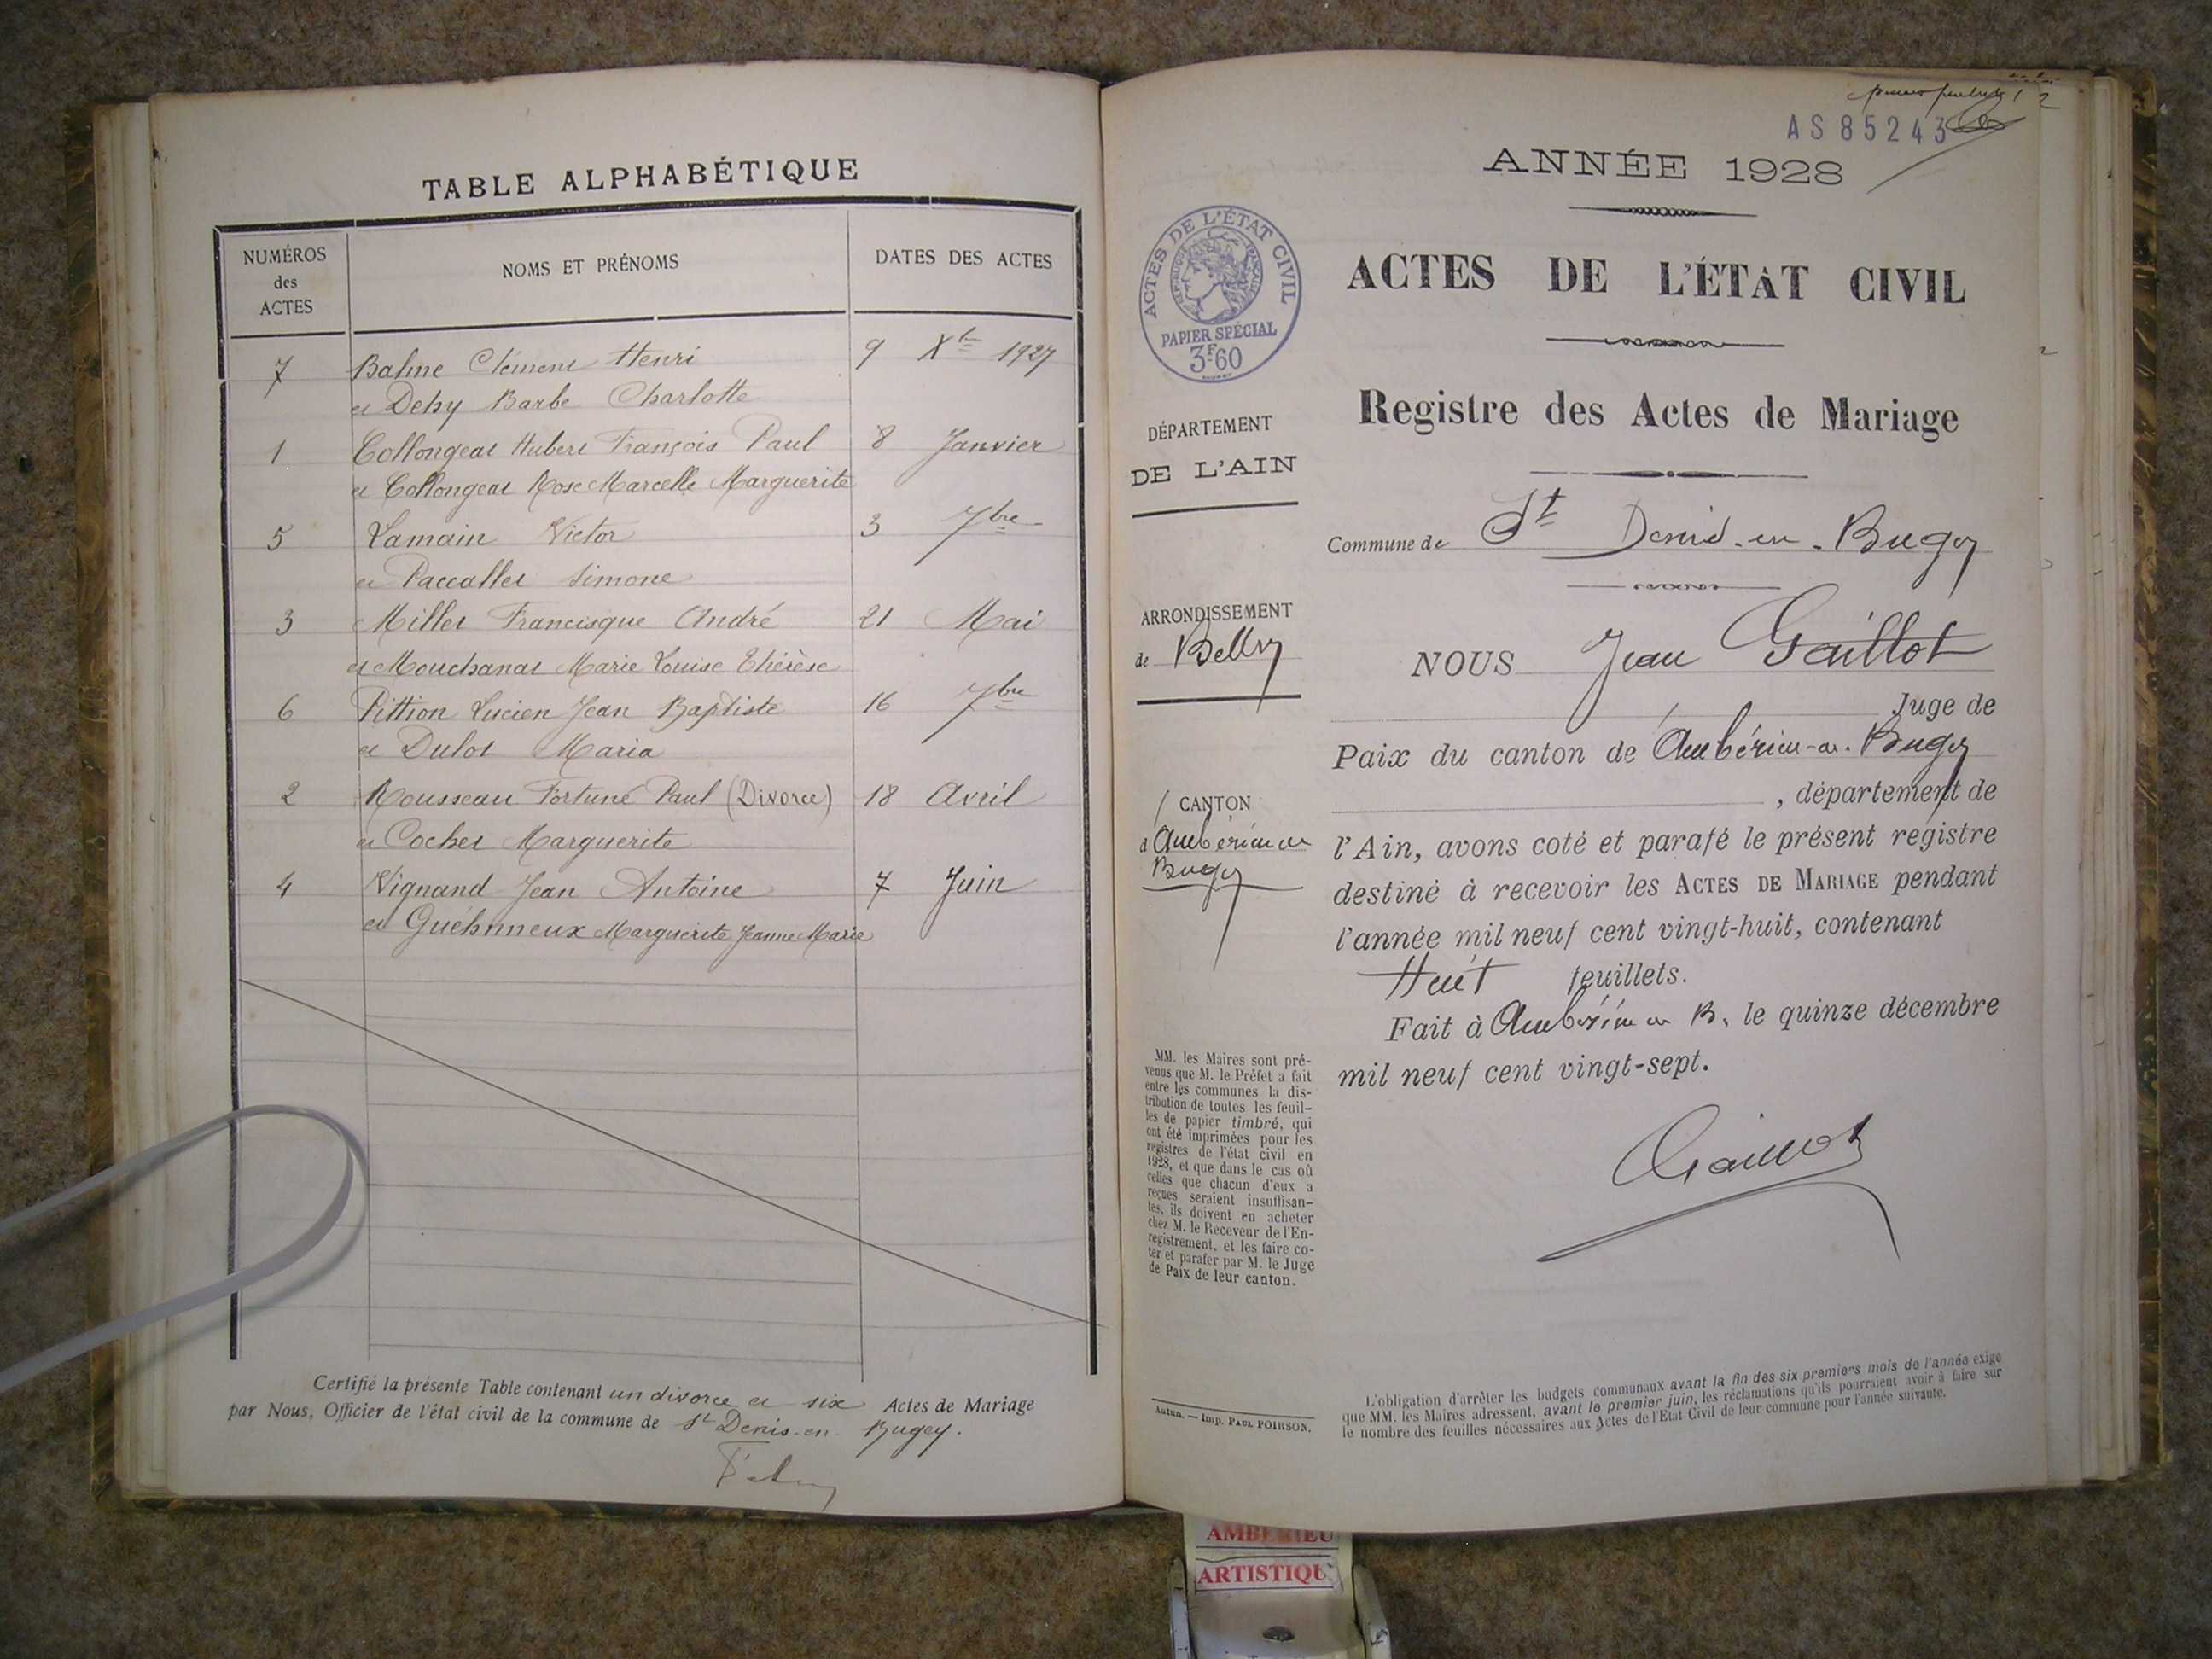 TABLE ALPHABÉTIQUE
NUMÉROS
des
ACTES
NOMS ET PRÉNOMS
DATES DES ACTES
7 Balme Clément Henri 9 Xbre 1927
et Dehy Barbe Charlotte
1 Collongeat Hubert François Paul 8 Janvier
et Collongeat Rose Marcelle Marguerite
5 Lamain Victor 3 7bre
et Paccallet Simone
3 Millet Francisque André 21 Mai
et Mouchanat Marie Louise Thérèse
6 Pittion Lucien Jean Baptiste 16 7bre
et Dulot Maria
2 Rousseau Fortuné Paul (Divorce) 18 Avril
et Cochet Marguerite
4 Vignand Jean Antoine 7 Juin
et Guéhnneux Marguerite Jeanne Marie
Certifié la présente Table contenant un divorce et six Actes de Mariage
par Nous, Officier de l'état civil de la commune de St Denis-en Bugey.
AS85243
ANNÉE 1928
ACTES DE L'ÉTAT CIVIL
RÉPUBLIQUE FRANÇAISE
PAPIER SPÉCIAL
3F60
ACTES DE L'ÉTAT CIVIL
Registre des Actes de Mariage
DÉPARTEMENT
DE L'AIN
Commune de St Denis-en-Bugey
ARRONDISSEMENT
de Belley
NOUS Jean Gaillot
Juge de
Paix du canton de Ambérieu-en-Bugey
, département de
CANTON
d'Ambérieu en
Bugey
l'Ain, avons coté et parafé le présent registre
destiné à recevoir les ACTES DE MARIAGE pendant
l'année mil neuf cent vingt-huit, contenant
Huit feuillets.
Fait à Ambérieu en B, le quinze décembre
mil neuf cent vingt-sept.
Gaillot
MM. les Maires sont pré-
venus que M. le Préfet a fait
entre les communes la dis-
tribution de toutes les feuil-
les de papier timbré, qui
ont été imprimées pour les
registres de l'état civil en
1928, et que dans le cas où
celles que chacun d'eux a
reçues seraient insuffisan-
tes, ils doivent en acheter
chez M. le Receveur de l'En-
registrement, et les faire co-
ter et parafer par M. le Juge
de Paix de leur canton.
Autun. — Imp. PAUL POIRSON.
L'obligation d'arrêter les budgets communaux avant la fin des six premiers mois de l'année exige
que MM. les Maires adressent, avant le premier juin, les réclamations qu'ils pourraient avoir à faire sur
le nombre des feuilles nécessaires aux Actes de l'Etat Civil de leur commune pour l'année suivante.
AMBERIEU
ARTISTIQU